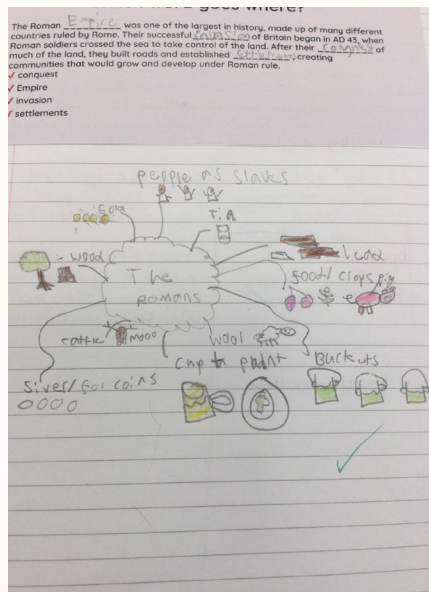 goes where?
The Roman Empire was one of the largest in history, made up of many different
countries ruled by Rome. Their successful invasion of Britain began in AD 43, when
Roman soldiers crossed the sea to take control of the land. After their conquest of
much of the land, they built roads and established settlements, creating
communities that would grow and develop under Roman rule.
✓ conquest
✓ Empire
✓ invasion
✓ settlements
people as slaves
Gold
Tin
- wood
lead
The
Romans
food/ crops pig
cattle
mooo
wool
Cup + 
Buckets
Siver/ for coins